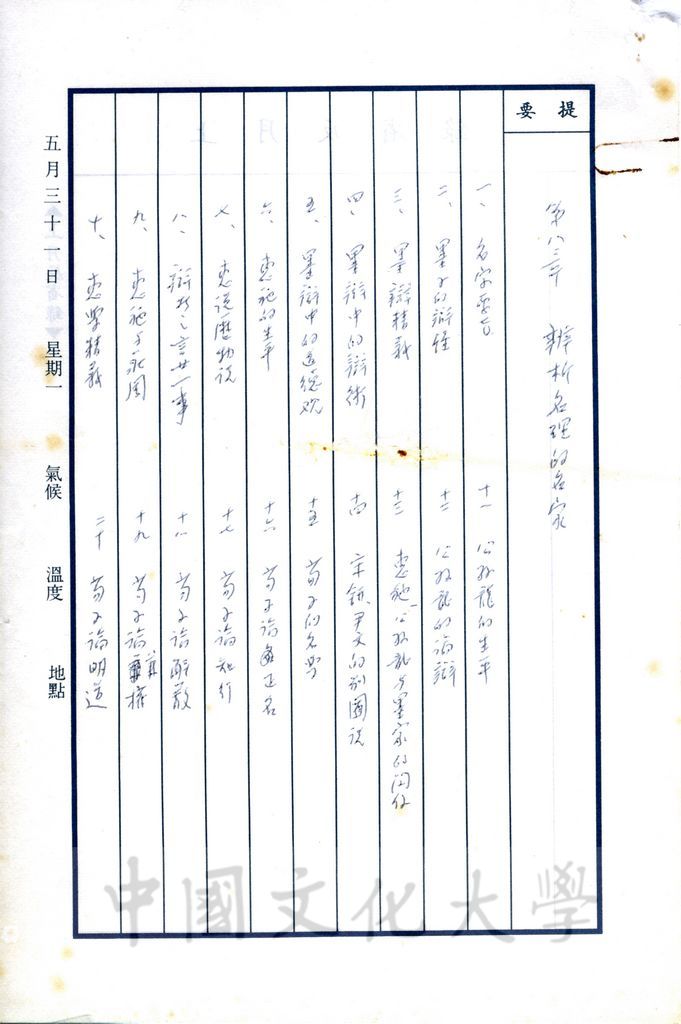 提要
第八三章 辨析名理的名家
一、名家要旨
二、墨子的辯經
三、墨辯精義
四、墨辯中的辯術
五、墨辯中的道德观
六、惠施的生平
七、惠施歷物説
八、辯者之言廿一事
九、惠施与莊周
十、惠學精義
十一 公孙龍的生平
十二 公孙龍的論辯
十三 惠施、公孙龍与墨家的関係
十四 宋銒、尹文的別囿説
十五 荀子的名學
十六 荀子論正名
十七 荀子論知行
十八 荀子論解蔽
十九 荀子論權
二十 荀子論明道
五月三十一日 星期一 氣候 溫度 地點
中國文化大學